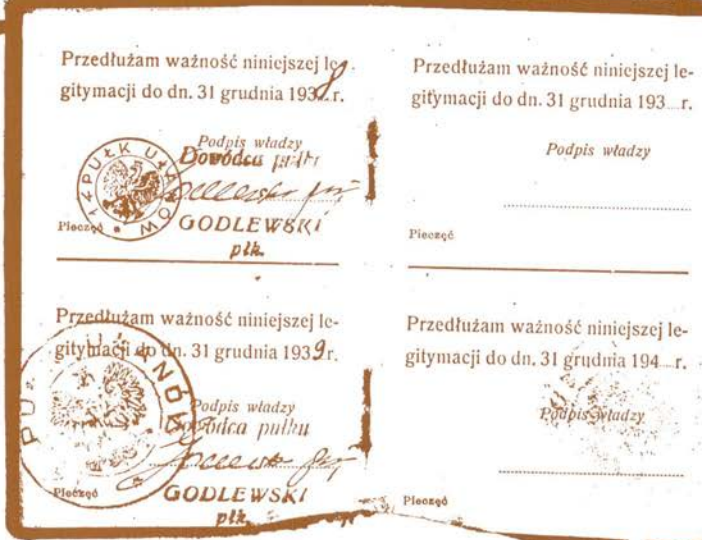 Przedłużam ważność niniejszej le-
gitymacji do dn. 31 grudnia 1938 r.
14 PUŁK UŁANÓW
Podpis władzy
Dowódca pułku
GODLEWSKI
płk.
Pieczęć
Przedłużam ważność niniejszej le-
gitymacji do dn. 31 grudnia 1939 r.
Podpis władzy
Dowódca pułku
GODLEWSKI
płk.
Pieczęć
Przedłużam ważność niniejszej le-
gitymacji do dn. 31 grudnia 193...r.
Podpis władzy
Pieczęć
Przedłużam ważność niniejszej le-
gitymacji do dn. 31 grudnia 194...r.
Podpis władzy
Pieczęć